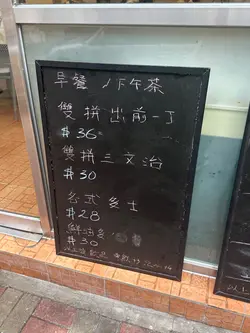 早餐/下午茶
雙拼出前一丁
$36
雙拼三文治
$30
各式多士
$28
鮮油多
$30